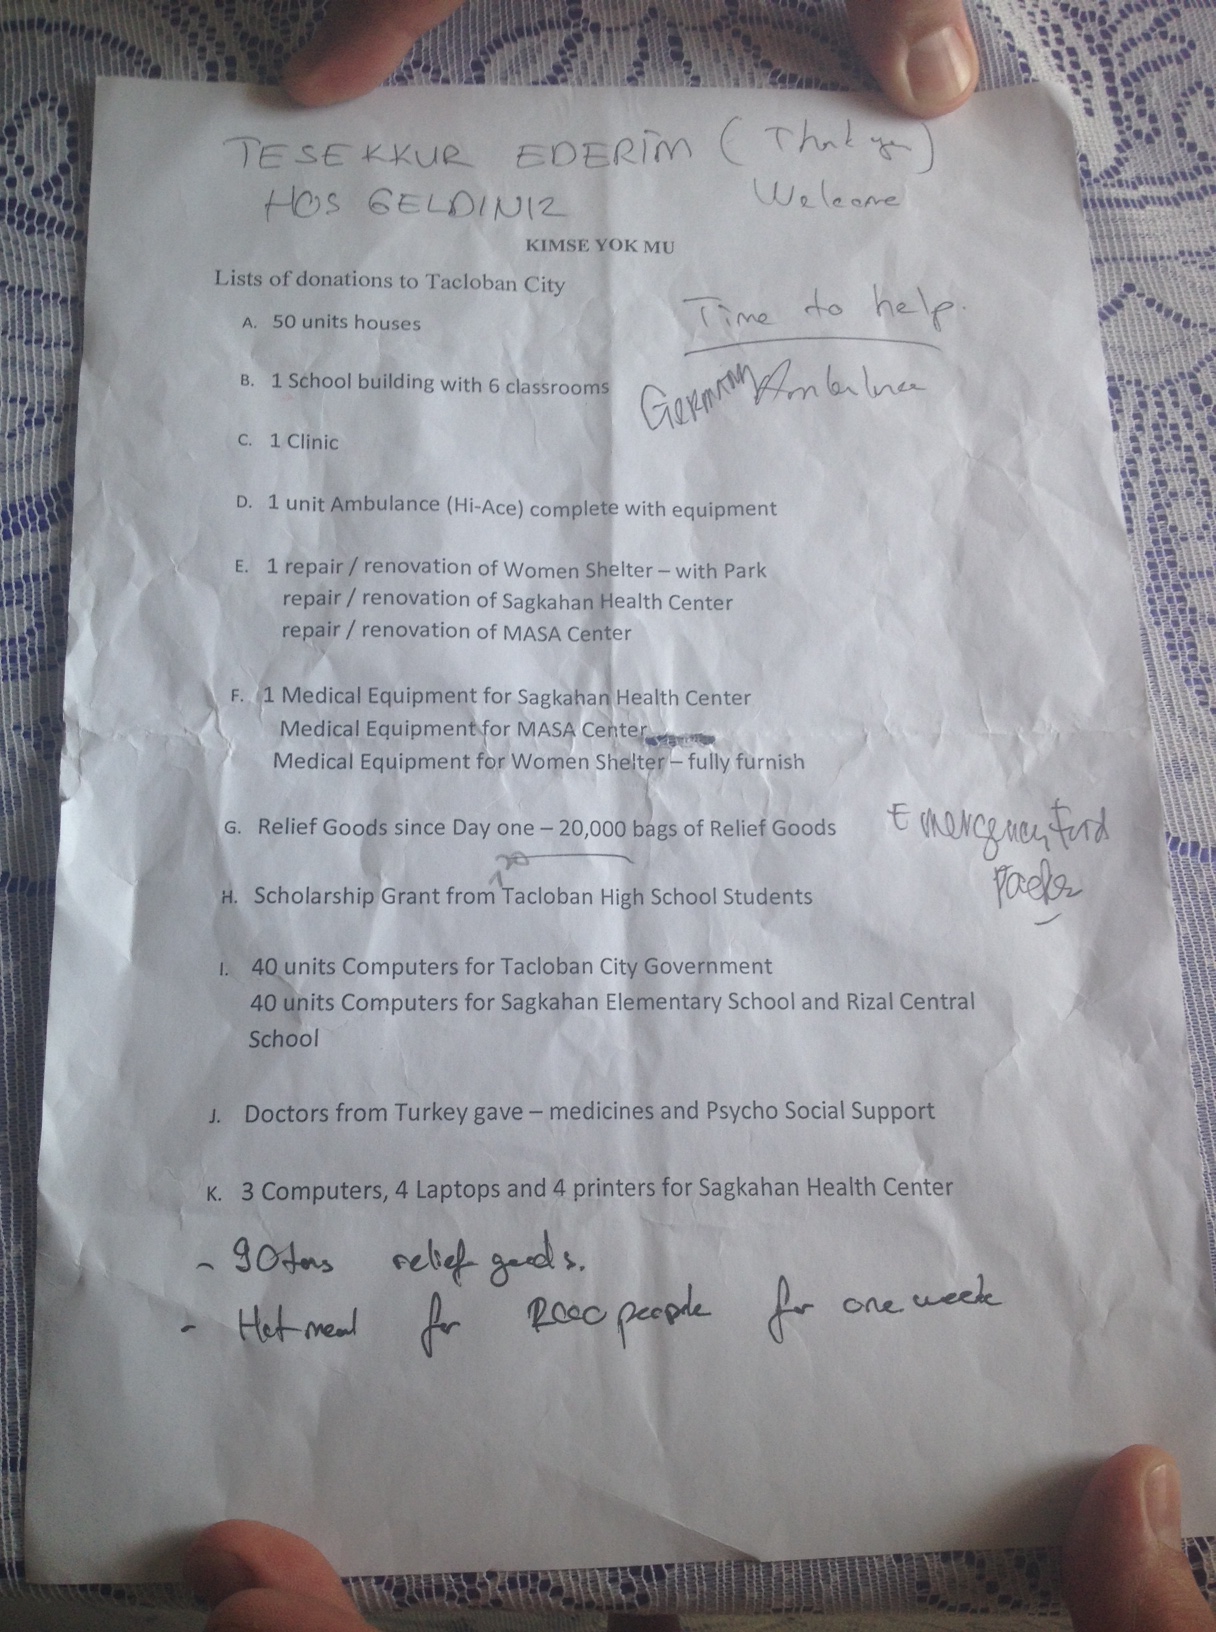 TESEKKUR EDERİM (Thank you)
HOS GELDINIZ Welcome
KIMSE YOK MU
Lists of donations to Tacloban City
Time to help.
A. 50 units houses
Germany Ambulance
B. 1 School building with 6 classrooms
C. 1 Clinic
D. 1 unit Ambulance (Hi-Ace) complete with equipment
E. 1 repair / renovation of Women Shelter – with Park
repair / renovation of Sagkahan Health Center
repair / renovation of MASA Center
F. 1 Medical Equipment for Sagkahan Health Center
Medical Equipment for MASA Center
Medical Equipment for Women Shelter – fully furnish
G. Relief Goods since Day one – 20,000 bags of Relief Goods
Emergency Food
Packs
H. Scholarship Grant from Tacloban High School Students
I. 40 units Computers for Tacloban City Government
40 units Computers for Sagkahan Elementary School and Rizal Central
School
J. Doctors from Turkey gave – medicines and Psycho Social Support
K. 3 Computers, 4 Laptops and 4 printers for Sagkahan Health Center
- 90 tons relief goods.
- Hot meal for people for one week